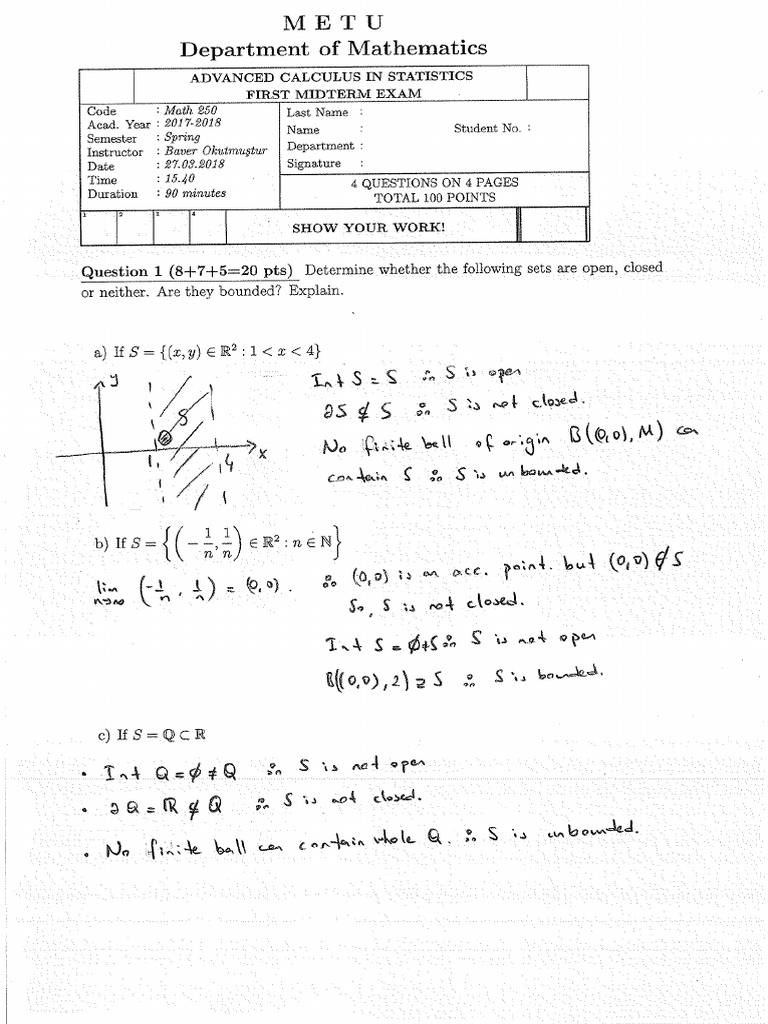 M E T U
Department of Mathematics
ADVANCED CALCULUS IN STATISTICS
FIRST MIDTERM EXAM
Code : Math 250
Acad. Year : 2017-2018
Semester : Spring
Instructor : Baver Okutmuştur
Date : 27.03.2018
Time : 15.40
Duration : 90 minutes
Last Name :
Name : Student No. :
Department :
Signature :
4 QUESTIONS ON 4 PAGES
TOTAL 100 POINTS
1 2 3 4
SHOW YOUR WORK!
Question 1 (8+7+5=20 pts) Determine whether the following sets are open, closed
or neither. Are they bounded? Explain.
a) If S = {(x, y) ∈ ℝ² : 1 < x < 4}
y
S
1 4 x
Int S = S ∴ S is open
∂S ⊄ S ∴ S is not closed.
No finite ball of origin B((0,0), M) can
contain S ∴ S is unbounded.
b) If S = {(-1/n, 1/n) ∈ ℝ² : n ∈ ℕ}
lim n→∞ (-1/n, 1/n) = (0,0).
∴ (0,0) is an acc. point. but (0,0) ∉ S
So, S is not closed.
Int S = ∅ ≠ S ∴ S is not open
B((0,0), 2) ⊇ S ∴ S is bounded.
c) If S = ℚ ⊂ ℝ
• Int Q = ∅ ≠ Q ∴ S is not open
• ∂Q = ℝ ⊄ Q ∴ S is not closed.
• No finite ball can contain whole Q. ∴ S is unbounded.